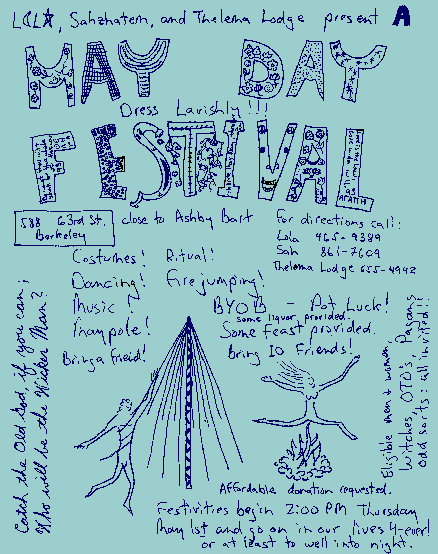 LOLA, Sahzhatem, and Thelema Lodge present A
MAY DAY
Dress Lavishly!!!
FESTIVAL
588 63rd St.
Berkeley
close to Ashby Bart
For directions call:
Lola 465-9389
Sah 861-7609
Thelema Lodge 655-4942
Costumes! Ritual!
Dancing! Firejumping!
Music!
Maypole!
Bring a freid!
BYOB - Pot Luck!
some liquor provided.
Some feast provided.
Bring 10 Friends!
Catch the Old God, if you can;
Who will be the Wicker Man?
Eligible men & women,
Witches, OTO's, Pagans
odd sorts: all invited!!
Affordable donation requested.
Festivities begin 2:00 PM Thursday
May 1st and go on in our lives 4-ever!
or at least to well into night.